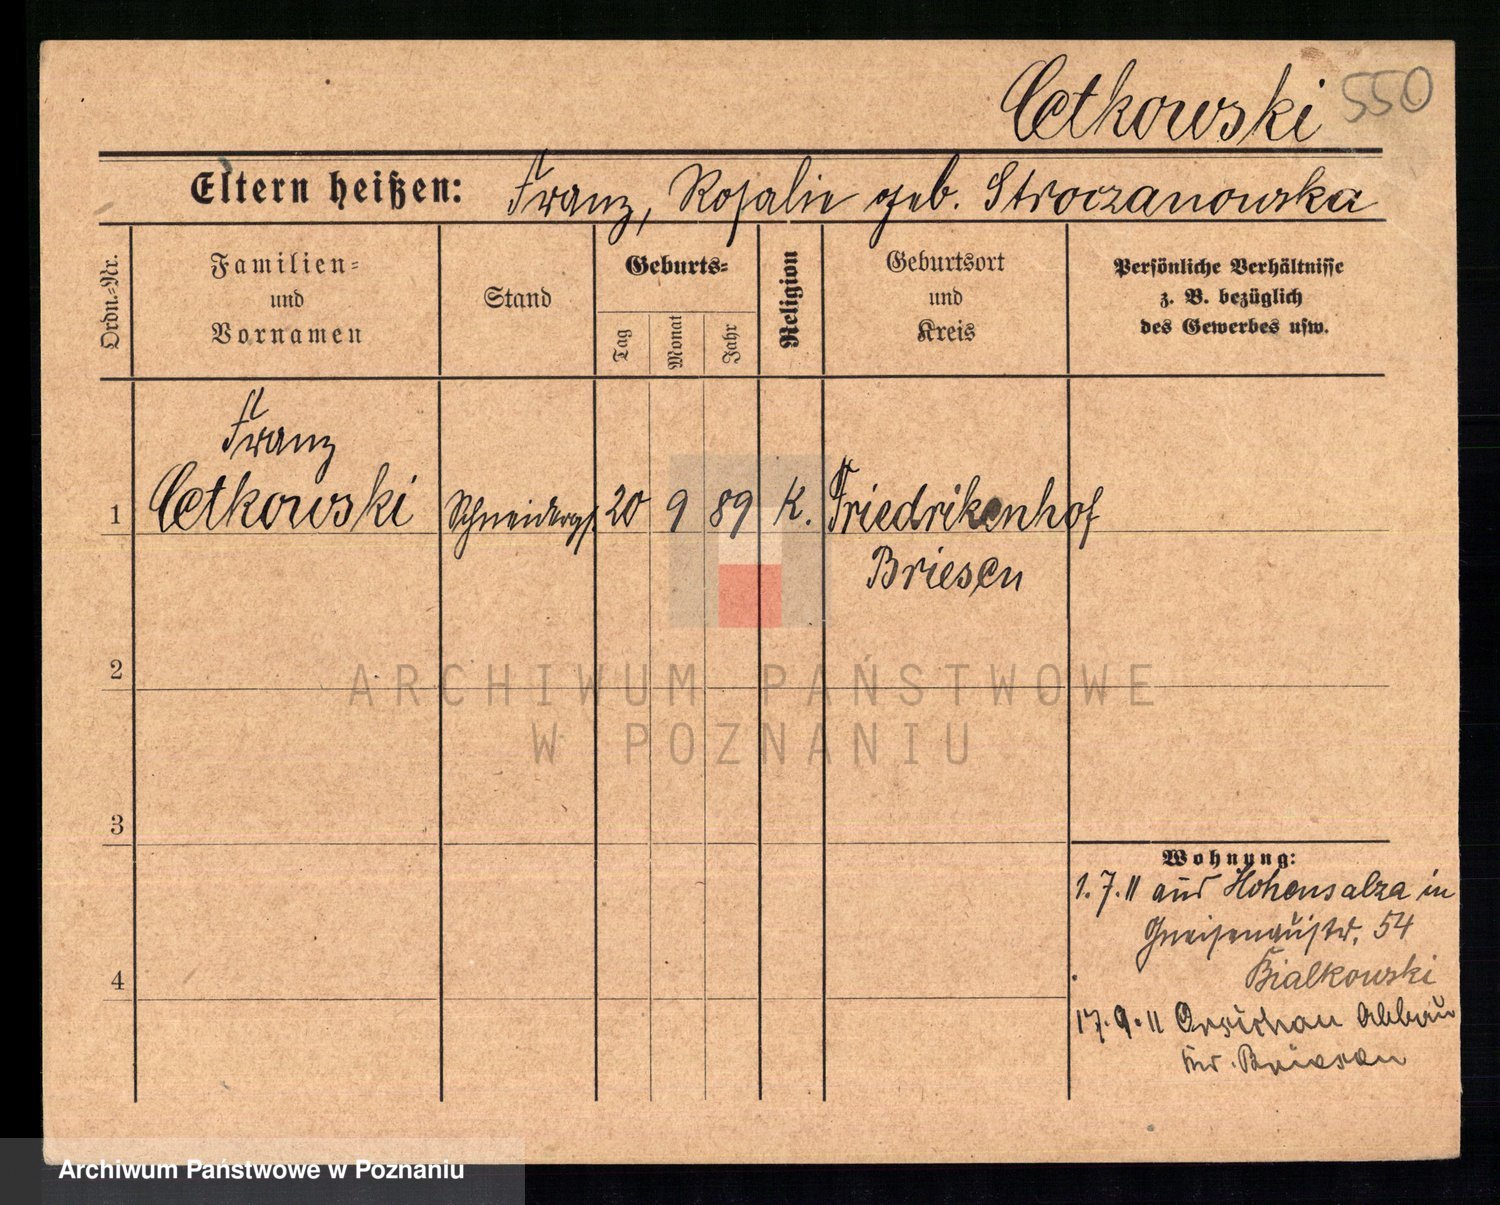 Cetkowski 550
Eltern heißen: Franz, Rosalie geb. Stroczanowska
Ordn.=Nr.
Familien=
und
Vornamen
Stand
Geburts=
Tag
Monat
Jahr
Religion
Geburtsort
und
Kreis
Persönliche Verhältnisse
z. B. bezüglich
des Gewerbes usw.
Franz
1 Cetkowski Schneiderges. 20 9 89 K. Friedrikenhof
Briesen
2
3
4
Wohnung:
1.7.11 aus Hohensalza in
Gneisenaustr. 54
Bialkowski
17.9.11 Abbau
Kr. Briesen
ARCHIWUM PAŃSTWOWE
W POZNANIU
Archiwum Państwowe w Poznaniu